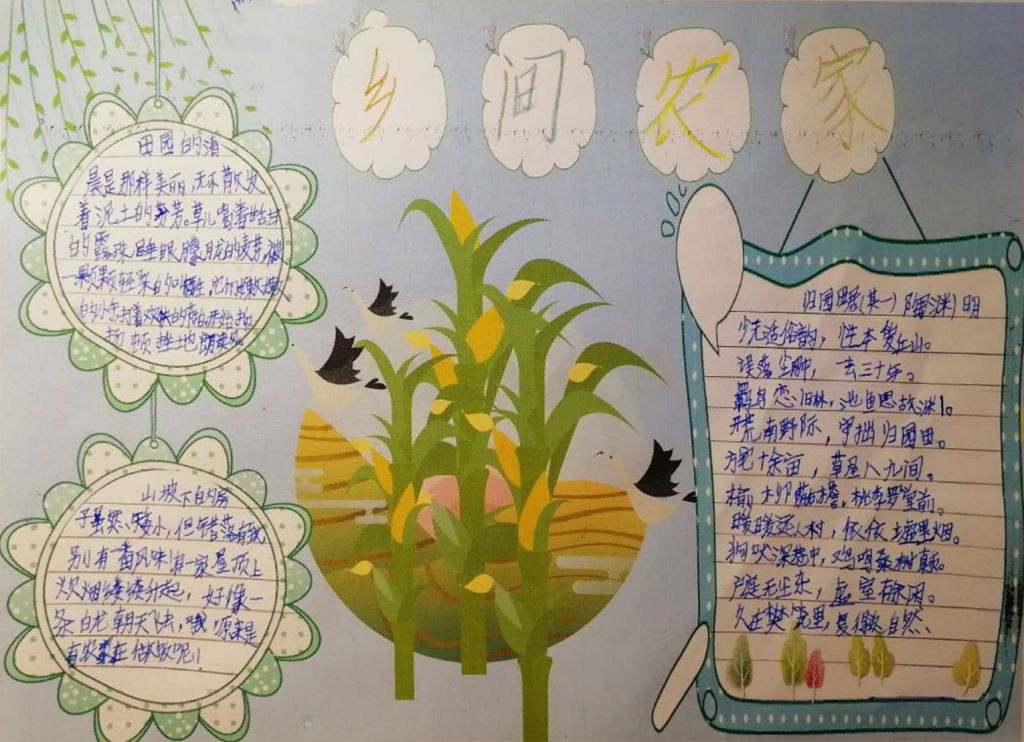 乡间农家
田园的清
晨是那样美丽,无不散发
着泥土的芬芳。草儿喝着
的露珠,睡眼朦胧的麦芽,被
一颗颗轻柔的
的
扬顿挫地朗读
山坡下的房
子虽然矮小,但错落有致,
别有一番风味!有一家屋顶上
炊烟缕缕升起,好像一
条白龙朝天飞去,哦,原来是
有农家在做饭呢!
归园田居(其一)陶渊明
少无适俗韵,性本爱丘山。
误落尘网,去三十年。
羁鸟恋旧林,池鱼思故渊。
开荒南野际,守拙归园田。
方宅十余亩,草屋八九间。
榆柳荫后檐,桃李罗堂前。
暧暧远人村,依依墟里烟。
狗吠深巷中,鸡鸣桑树颠。
户庭无尘杂,虚室有余闲。
久在樊笼里,复得返自然、